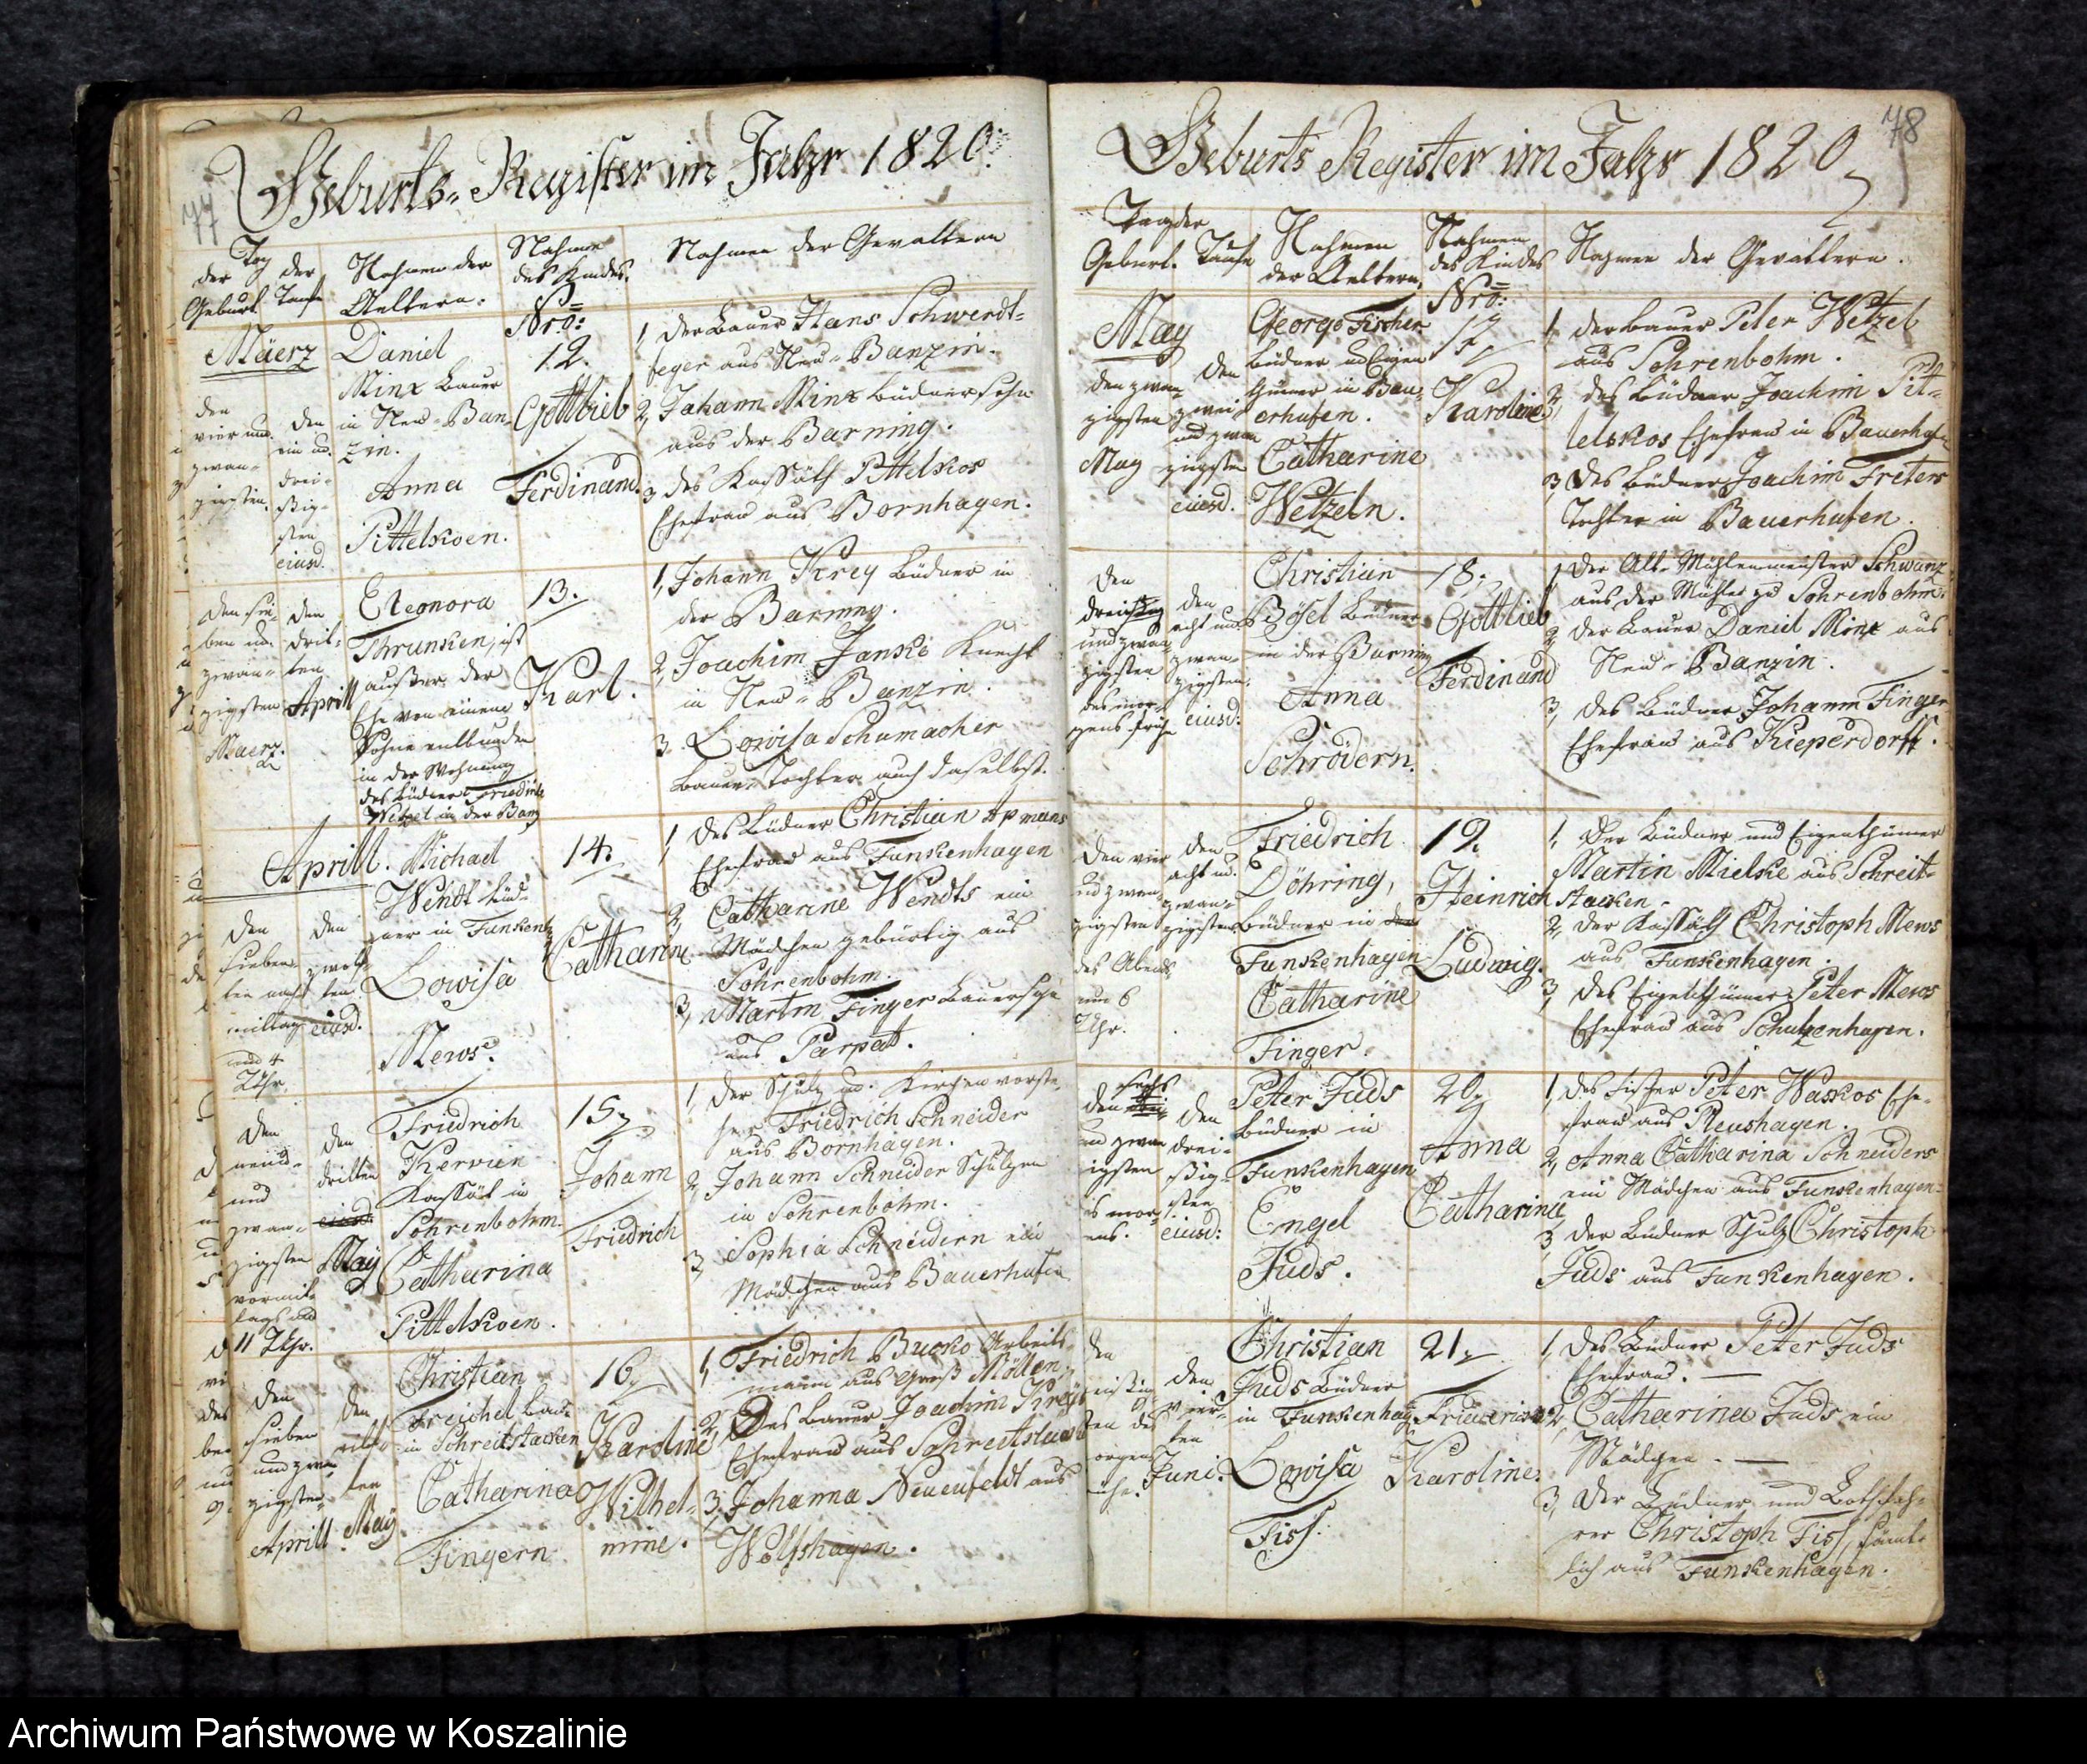 77
Geburts-Register im Jahr 1820.
Tag
der der
Geburt. Taufe
Nahmen der
Aeltern.
Nahme
des Kindes.
Nahmen der Gevattern
Maerz
den
vier und
zwan-
zigsten.
den
ein ud.
drei-
ßig-
sten
eiusd.
Daniel
Minx Bauer
in Neu-Ban-
zin.
Anna
Pittelkoen.
Nro:
12.
Gottlieb
Ferdinand.
1, der Bauer Hans Schwerdt-
feger aus Neu-Banzin.
2, Johann Minx Büdnersohn
aus der Barning.
3, des Kossäth Pittelkos
Ehefrau aus Bornhagen.
den sie-
ben ud.
zwan-
zigsten
Maerz.
den
drit-
ten
Aprill
Eleonora
Thrunken, ist
außer der
Ehe von einem
Sohne entbunden
in der Wohnung
des Büdner Friedrich
Wetzel in der Barn
13.
Karl.
1, Johann Krey Büdner in
der Barning.
2, Joachim Janske Knecht
in Neu-Banzin.
3, Lowisa Schumacher
Bauer-Tochter auch daselbst.
Aprill.
den
sieben-
ten nach
mittag
um 4
Uhr.
den
zwölf-
ten
eiusd.
Michael
Wendt Büd-
ner in Funkenh
Lowisa
Mews.
14.
Catharine
1, des Büdner Christian Apmans
Ehefrau aus Funkenhagen
2, Catharine Wendts ein
Mädchen gebürtig aus
Sohrenbohm.
3, Martin Finger Bauersohn
aus Parpat.
den
neun-
und
zwan-
zigsten
vormit-
tags um
11 Uhr.
den
dritten
eiusd.
May
Friedrich
Kervien
Kossät in
Sohrenbohm.
Catharina
Pittelkoen.
15,
Johann
Friedrich
1, der Schulz u. Kirchenvorste-
her Friedrich Schneider
aus Bornhagen.
2, Johann Schneider Schulzen
in Sohrenbohm.
3, Sophia Schneidern ein
Mädchen aus Bauerhufen
den
sieben
und zwan
zigsten
Aprill
den
eilf-
ten
May.
Christian
Treichel Bau.
in Schreitstacken
Catharina
Fingern
16,
Karoline
Wilhel-
mine.
1, Friedrich Busko Arbeits-
mann aus Groß Möllen.
2, Des Bauer Joachim Kreys
Ehefrau aus Schreitstack
3, Johanna Neuenfeldt aus
Wolfshagen.
78
Geburts Register im Jahr 1820,
Tag der
Geburt. Taufe
Nahmen
der Aeltern.
Nahmen
des Kindes
Nahmen der Gevattern.
May
den zwan-
zigsten
May
den
zwei
und zwan
zigsten
eiusd.
George Fischer
Büdner ud Eigen
thümer in Bau-
erhufen.
Catharine
Wetzeln.
Nro:
17,
Karoline.
1, der Bauer Peter Wetzel
aus Sohrenbohm.
2, des Büdner Joachim Pit-
telskos Ehefrau in Bauerhufn
3, des Büdner Joachim Freters
Tochter in Bauerhufen.
den
drei
und zwan
zigsten
des mor-
gens frühe
den
acht und
zwan-
zigsten.
eiusd:
Christian
Bösel Büdner
in der Barning
Anna
Schrödern.
18,
Gottlieb
Ferdinand
1, der Alt-Mühlenmeister Schwanz
aus der Mühle zu Sohrenbohm.
2, der Bauer Daniel Minx aus
Neu-Banzin.
3, des Büdner Johann Finger
Ehefrau aus Kieperdorff.
den vier
ud zwan-
zigsten
des Abends
um 6
Uhr.
den
acht u.
zwan-
zigsten
Friedrich
Döhring,
Büdner in der
Funkenhagen
Catharine
Finger.
19.
Heinrich
Ludwig.
1, Der Büdner und Eigenthümer
Martin Mielske aus Schreit-
stacken.
2, der Kossäth Christoph Mews
aus Funkenhagen.
3, des Eigenthümer Peter Mews
Ehefrau aus Schulzenhagen.
sechs
den
un zwan
igsten
s mor-
ens.
den
drei-
ßig-
sten
eiusd:
Peter Juds
Büdner in
Funkenhagen
Engel
Juds.
20,
Anna
Catharine
1, des Fischer Peter Waskos Ehe-
frau aus Reushagen.
2, Anna Catharina Schneiders
ein Mädchen aus Funkenhagen.
3, der Büdner Schulz Christoph
Juds aus Funkenhagen.
den
ten des
orgens
ühe.
den
vier-
ten
Juni.
Christian
Juds Büdner
in Funkenhag
Lowisa
Fiss.
21,
Friederica
Karoline.
1, des Büdner Peter Juds
Ehefrau.
2, Catharina Juds ein
Mädgen.
3, Der Büdner und Bothsfah-
rer Christoph Fiss, sämt-
lich aus Funkenhagen.
Archiwum Państwowe w Koszalinie